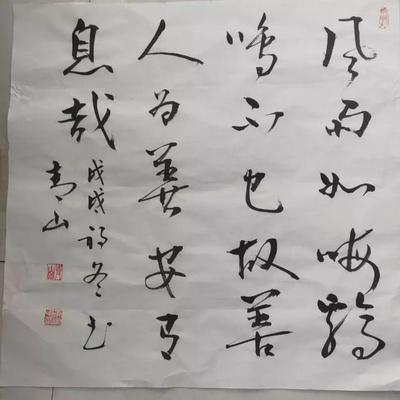 风雨如晦鸡
鸣不已故善
人为善安有
息哉
戊戌初冬书
青山